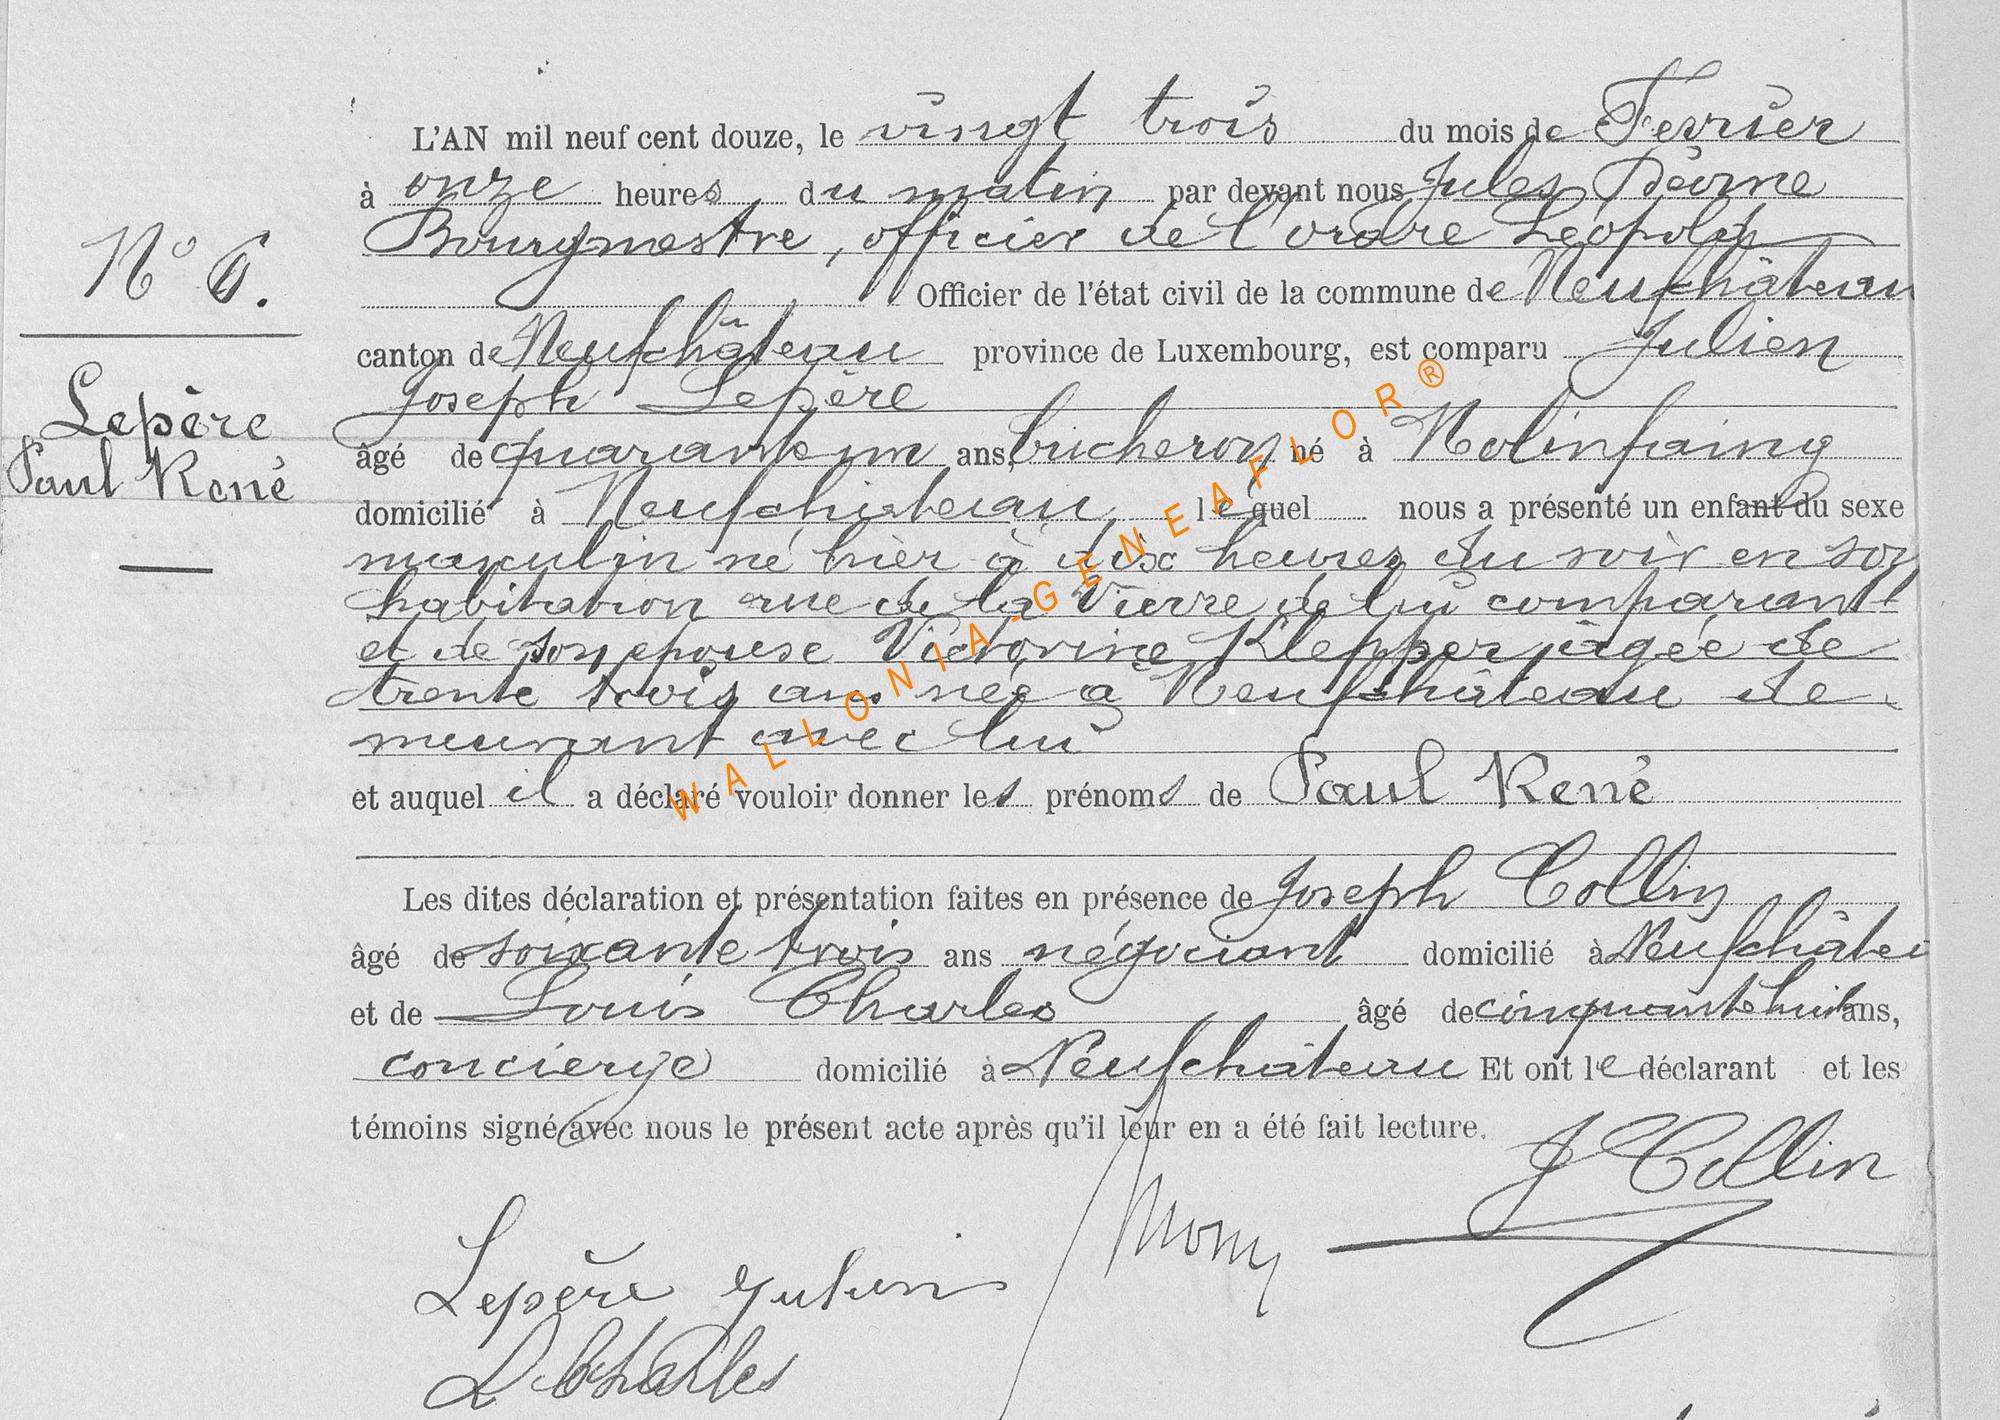 L'AN mil neuf cent douze, le vingt trois du mois de Fevrier
à onze heures du matin par devant nous Jules
Bourgmestre, officier de l'ordre Léopold
N° 6.
Officier de l'état civil de la commune de Neufchâteau
canton de Neufchâteau province de Luxembourg, est comparu Julien
Joseph Lepère
Lepère
Paul René
âgé de quarante un ans, bucheron né à Molinfaing
domicilié à Neufchâteau lequel nous a présenté un enfant du sexe
masculin né hier à dix heures du soir en son
habitation rue de la Vierre de lui comparant
et de son epouse Victorine Klepper, agée de
trente trois ans née à Neufchâteau de
meurant avec lui
et auquel il a déclaré vouloir donner les prénoms de Paul René
Les dites déclaration et présentation faites en présence de Joseph Collin
âgé de soixante trois ans négociant domicilié à Neufchâtea
et de Louis Charles âgé de cinquante huit ans,
concierge domicilié à Neufchâteau Et ont le déclarant et les
témoins signé avec nous le présent acte après qu'il leur en a été fait lecture.
J Collin
Lepère Julien
L Charles
WALLONIA-GENEAFLOR®